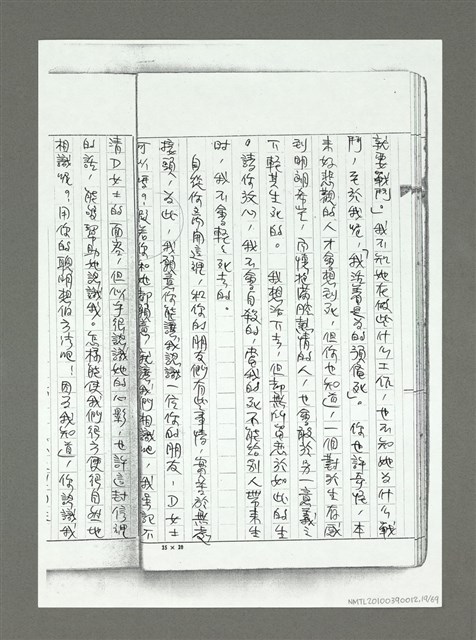 就要戰鬥」。我不知她在做些什么工作，也不知她為什么戰
鬥，至於我呢，「我活著是為的須倦死」。你也許奇怪，本
來好悲觀的人才會想到死，但你也知道，一個對於生存感
到明朗希望，而懷抱滿腔熱情的人，也會敢於另一意義之
下輕其生死的。 我想活下去，但却無所留戀於如此的生
。請你放心，我不會自殺的，當我的死不能給別人帶來生
時，我不會輕々死去的。
自從你商用這裡，和你的朋友們有些事情，需
接頭，為此，我願意你能讓我認識一位你的朋友，D女士
可以嗎？假若你和她都願意，就讓我們相識吧，我雖記不
清D女士的面容，但似乎很認識她的心影，也許這封信裡
的話，能夠幫助她認識我。怎樣能使我們很方便很自然地
相識呢？用你的聰明想個方法吧！因了我知道，你認識我
25 × 20
NMTL20100390012.19/69